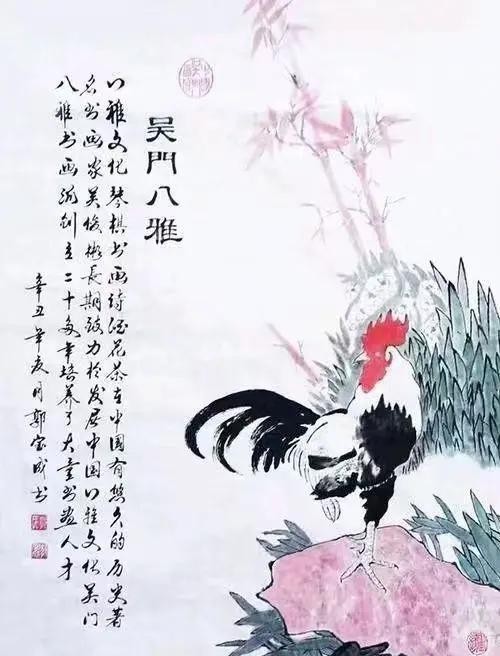 吴門八雅
八雅文化琴棋书画诗酒花茶在中国有悠久的历史著
名书画家吴俊彬長期致力於发展中国八雅文化吴门
八雅书画院创立二十多年培养了大量书画人才
辛丑年亥月郭宝成书